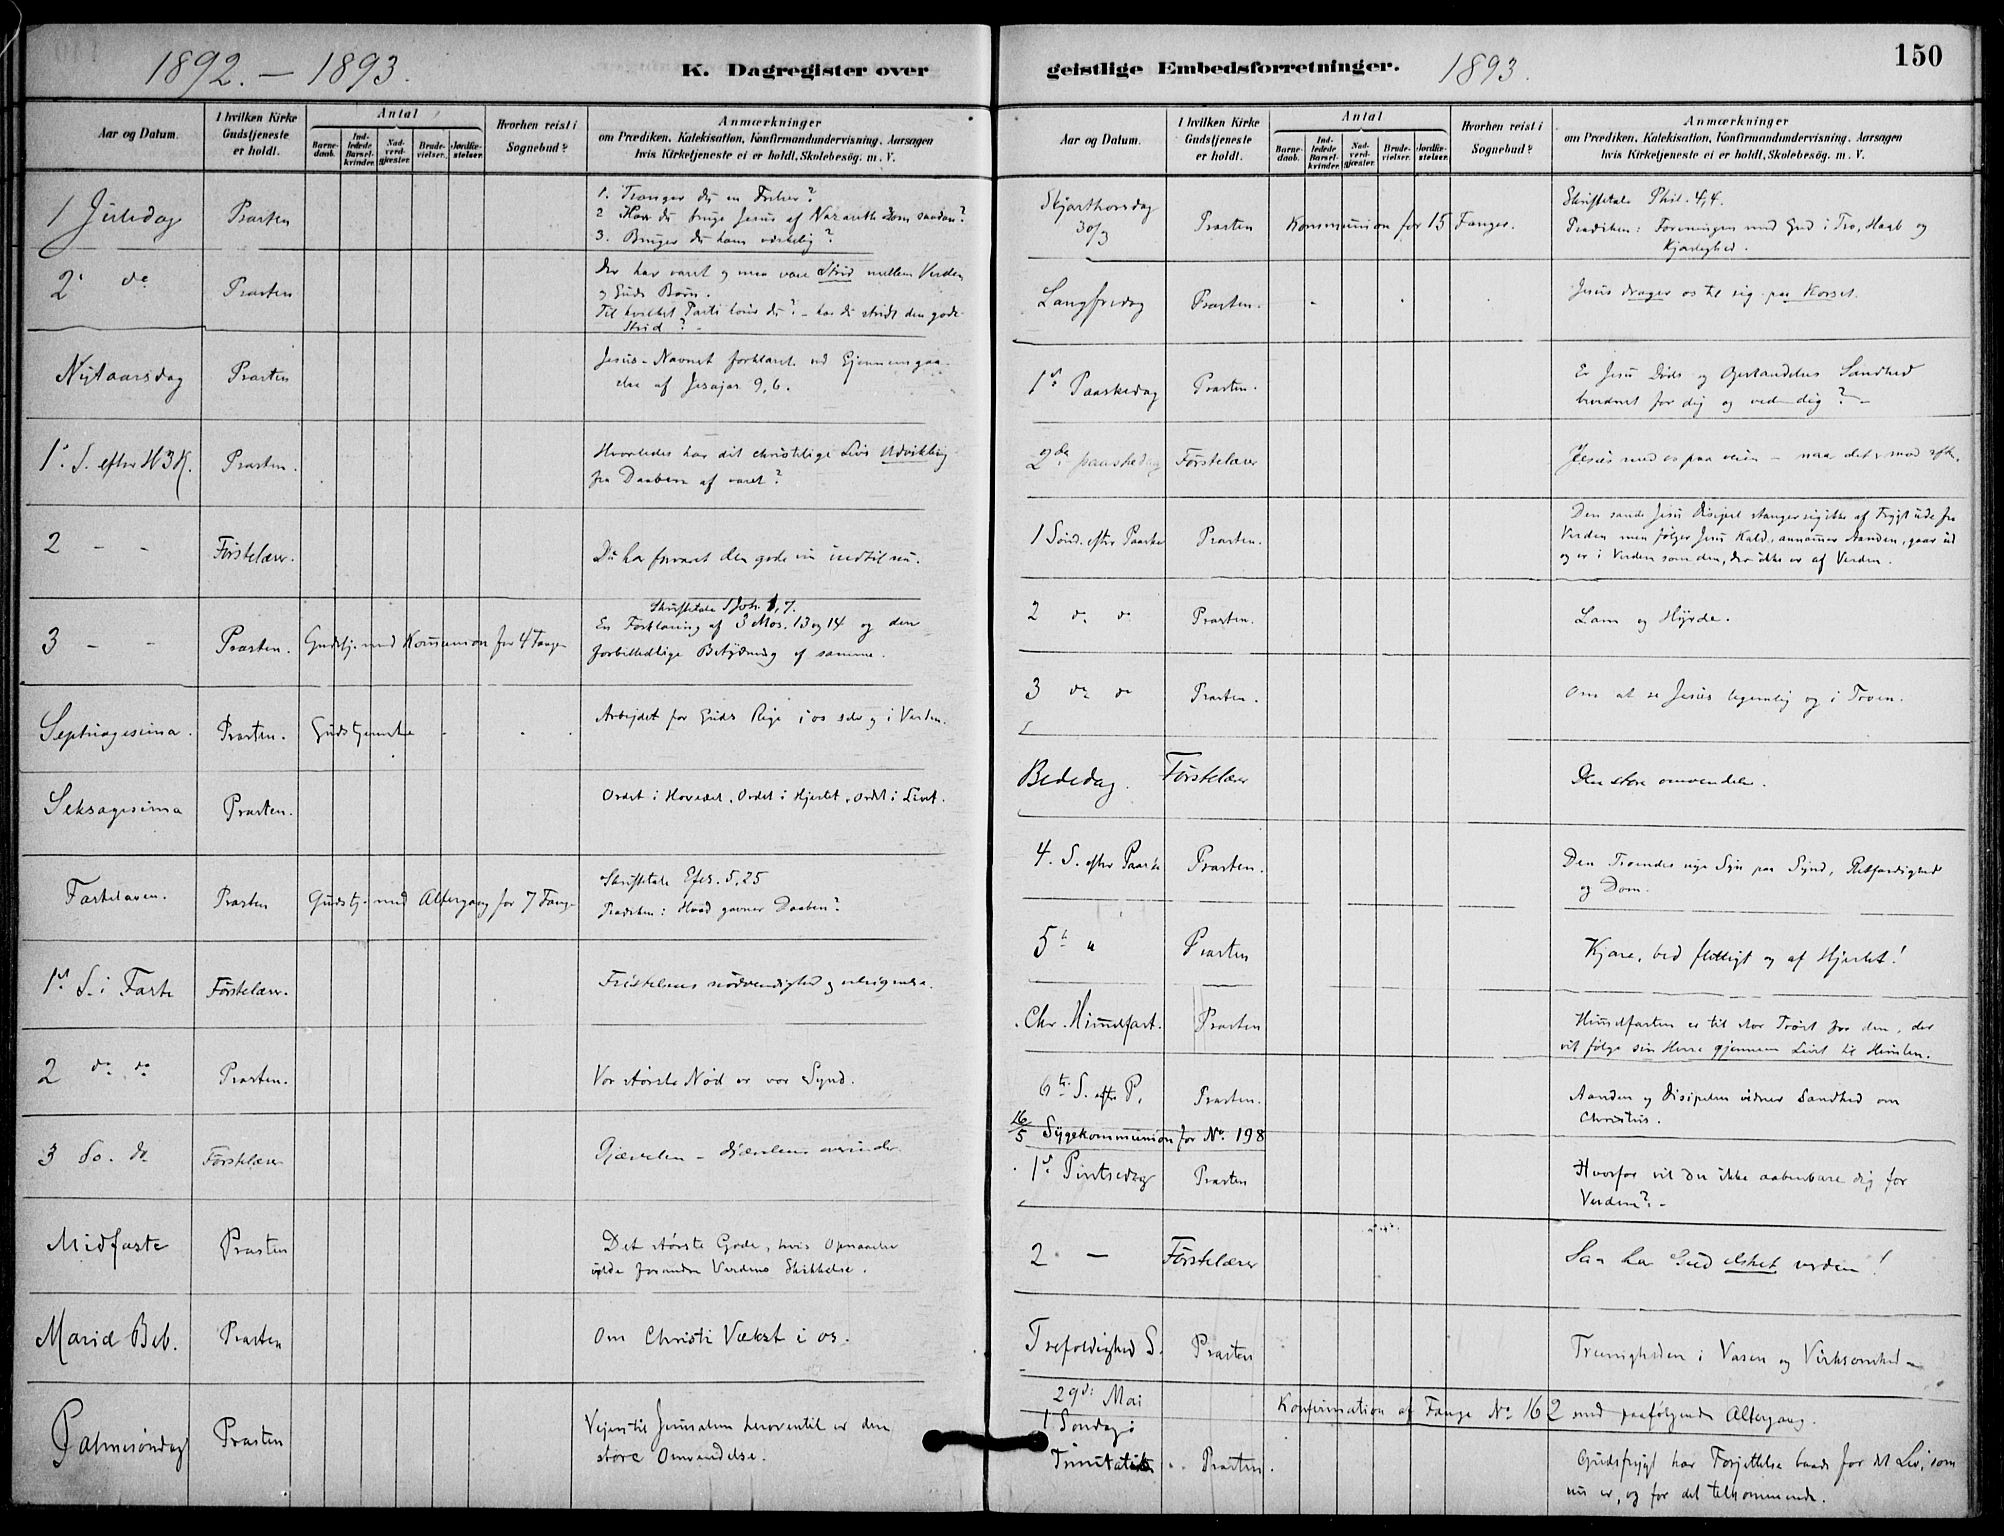 1892. – 1893.
K. Dagregister over
Aar og Datum.
I hvilken Kirke Gudstjeneste er holdt.
Antal
Barnedaab.
Indledede Barselkvinder.
Nadverdgjester.
Brudevielser.
Jordfæstelser.
Hvorhen reist i Sognebud?
Anmærkninger
om Prædiken, Katekisation, Konfirmandundervisning, Aarsagen
hvis Kirketjeneste ei er holdt, Skolebesøg. m. V.
1 Juledag Præsten 1. Trænger du en Frelser?
2 Har du bruge Jesus af Nazareth som saadan?
3. Bruger du ham virkelig?
2' do Præsten Der har været og maa være Strid mellem Verden
og Guds Børn.
Til hvilket Parti hører du? – har du stridt den gode
Strid? –
Nytaarsdag Præsten Jesus-Navnet forklaret ved Gjennemgaa-
else af Jesajas 9,6.
1. S. efter H3K. Præsten. Hvorledes har dit christelige Livs Udvikling
fra Daaben af været?
2 – – Førstelærer. Du har forvaret den gode vin indtil nu.
3 – – Præsten. Gudstj. med Kommunion for 4 Fanger Skriftetale 1 Joh. 1,7.
En Forklaring af 3 Mos. 13 og 14 og den
forbilledlige Betydning af samme.
Septuagesima. Præsten. Gudstjeneste Arbejdet for Guds Rige i os selv og i Verden.
Seksagesima Præsten. Ordet i Hovedet, Ordet i Hjertet, Ordet i Livet.
Fastelaven. Præsten Gudstj. med Altergang for 7 Fanger Skriftetale Efes. 5,25
Prædiken: Hvad gavner Daaben?
1ste S. i Faste Førstelærer. Fristelsens nødvendighed og
2 do do Præsten. Vor største Nød er vor Synd.
3 do. do Førstelærer Djævelen – djævelens overvinder.
Midfaste Præsten Det største Gode, hvis Opnaaelse
vilde forandre Verdens Skikkelse.
Mariæ Beb. Præsten Om Christi Vækst i os.
Palmesøndag Præsten Vejen til Jerusalem heroventil er den
store Omvendelse.
geistlige Embedsforretninger.
1893.
150
Aar og Datum.
I hvilken Kirke Gudstjeneste er holdt.
Antal
Barnedaab.
Indledede Barselkvinder.
Nadverdgjester.
Brudevielser.
Jordfæstelser.
Hvorhen reist i Sognebud?
Anmærkninger
om Prædiken, Katekisation, Konfirmandundervisning, Aarsagen
hvis Kirketjeneste ei er holdt, Skolebesøg. m. V.
Skjærthorsdag 30/3 Præsten Kommunion for 15 Fanger. Skriftetale Phil. 4,4.
Prædiken: Foreningen med Gud i Tro, Haab og
Kjærlighed.
Langfredag Præsten. Jesus drager os til sig paa Korset.
1ste Paaskedag Præsten. Er Jesu Døds og Opstandelses Sandhed
for dig og ved dig? –
2den paaskedag Førstelærer Jesus med os paa veien – naar det mod aften.
1 Sønd. efter Paaske Præsten. Den sande Jesu Discipel stænger sig ikke af Frygt ude fra
Verden men følger Jesu Kald, annammer Aanden, gaar ud
og er i Verden som den, der ikke er af Verden.
2 do do Præsten. Lam og Hyrde.
3 do do Præsten. Om at se Jesus legemlig og i Troen.
Bededag. Førstelærer Den store omvendelse!
4. S. efter Paaske Præsten. Den Troendes nye Syn paa Synd, Retfærdighed
og Dom.
5te " Præsten Kjære, bed flittigt og af Hjertet!
Chr. Himmelfart. Præsten Himmelfarten er til stor Trøst for den, der
vil følge sin Herre gjennem Livet til Himlen.
6te S. efter P. Præsten. Aanden og Disciplen vidner Sandhed om
Christus.
16/5 Sygekommunion for No 198
1ste Pintsedag Præsten Hvorfor vil du ikke aabenbare dig for
Verden? –
2 – Førstelærer Saa har Gud elsket verden!
Trefoldighed S. Præsten Treenigheden i Væsen og Virksomhed –
29de Mai Konfirmation af Fange No 162 med paafølgende Altergang.
1 Søndag i
Trinitatis Præsten. Gudsfrygt har Forjættelse baade for det Liv, som
nu er, og for det tilkommende.